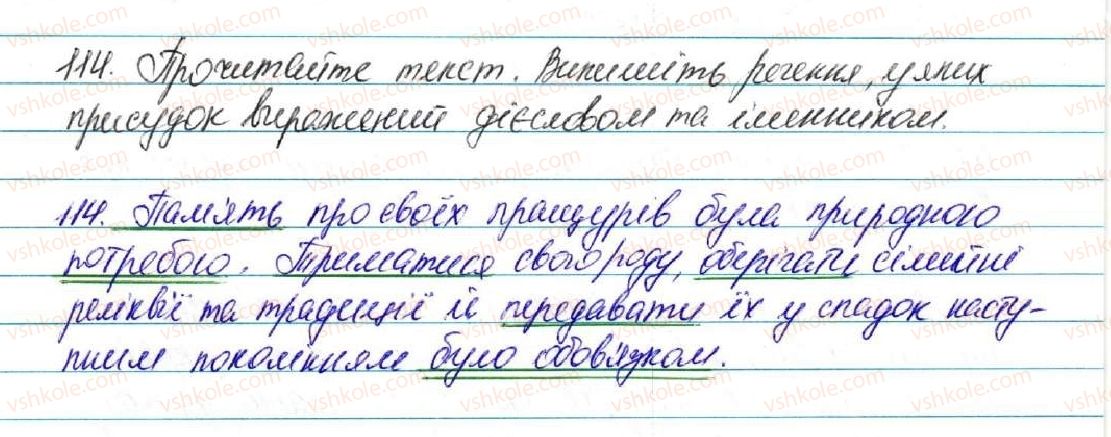 114. Прочитайте текст. Випишіть речення, у яких
присудок виражений дієсловом та іменником.
114. Пам'ять про своїх пращурів була природного
потребою. Триматися свого роду, оберігати сімейні
реліквії та традиції й передавати їх у спадок насту-
пним поколінням було обов'язком.